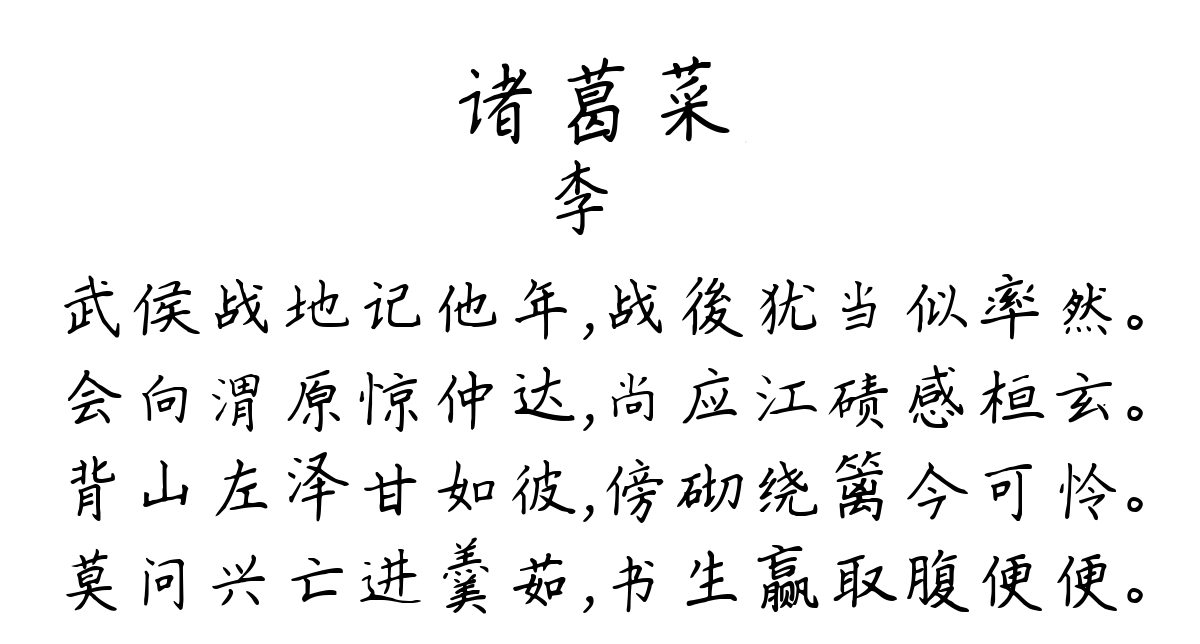 诸葛菜
李
武侯战地记他年,战後犹当似率然。
会向渭原惊仲达,尚应江碛感桓玄。
背山左泽甘如彼,傍砌绕篱今可怜。
莫问兴亡进羹茹,书生赢取腹便便。